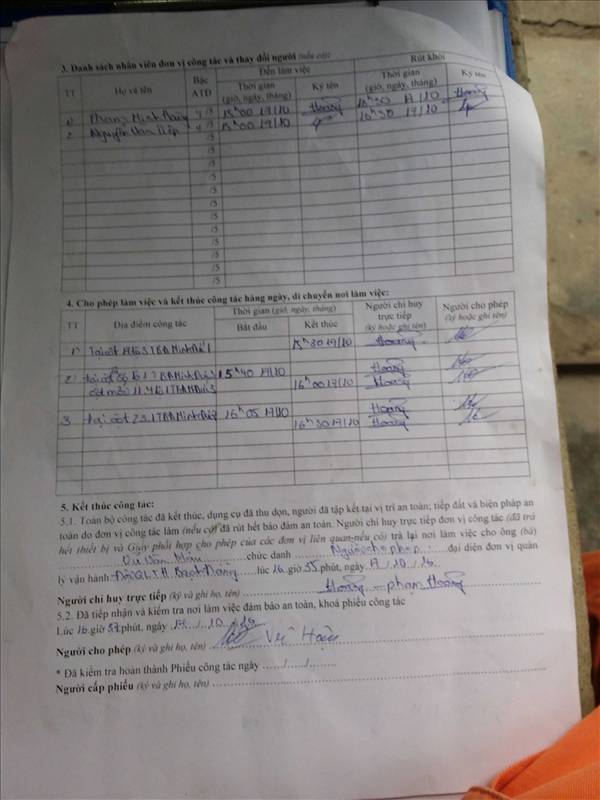 3. Danh sách nhân viên đơn vị công tác và thay đổi người (nếu có):
TT Họ và tên Bậc ATĐ Đến làm việc Rút khỏi
Thời gian (giờ, ngày, tháng) Ký tên Thời gian (giờ, ngày, tháng) Ký tên
1) Phạm Minh Hoàng 4/5 15h00 19/10 Hoàng 16h30 19/10 Hoàng
2 Nguyễn Văn Tiếp 4/5 15h00 19/10 16h30 19/10
/5
/5
/5
/5
/5
/5
/5
/5
/5
/5
/5
4. Cho phép làm việc và kết thúc công tác hàng ngày, di chuyển nơi làm việc:
TT Địa điểm công tác Thời gian (giờ, ngày, tháng) Người chỉ huy trực tiếp (ký hoặc ghi tên) Người cho phép (ký hoặc ghi tên)
Bắt đầu Kết thúc
1) Tại cột TBA Minh Đức 1 15h30 19/10 Hoàng
2) tại cột 15h40 19/10 Hoàng
16h00 19/10 Hoàng
3 tại cột 16h05 19/10 Hoàng
16h30 19/10 Hoàng
5. Kết thúc công tác:
5.1. Toàn bộ công tác đã kết thúc, dụng cụ đã thu dọn, người đã tập kết tại vị trí an toàn; tiếp đất và biện pháp an
toàn do đơn vị công tác làm (nếu có) đã rút hết bảo đảm an toàn. Người chỉ huy trực tiếp đơn vị công tác (đã trả
hết thiết bị và Giấy phối hợp cho phép của các đơn vị liên quan-nếu có) trả lại nơi làm việc cho ông (bà)
Vũ Văn Hậu chức danh Người cho phép đại diện đơn vị quản
lý vận hành: lúc 16 giờ 35 phút, ngày 10 / 16
Người chỉ huy trực tiếp (ký và ghi họ, tên) Hoàng - phạm Hoàng
5.2. Đã tiếp nhận và kiểm tra nơi làm việc đảm bảo an toàn, khoá phiếu công tác
Lúc 16 giờ 37 phút, ngày 19 / 10 / 16
Người cho phép (ký và ghi họ, tên) Vũ Hậu
* Đã kiểm tra hoàn thành Phiếu công tác ngày ...../...../........
Người cấp phiếu (ký và ghi họ, tên)